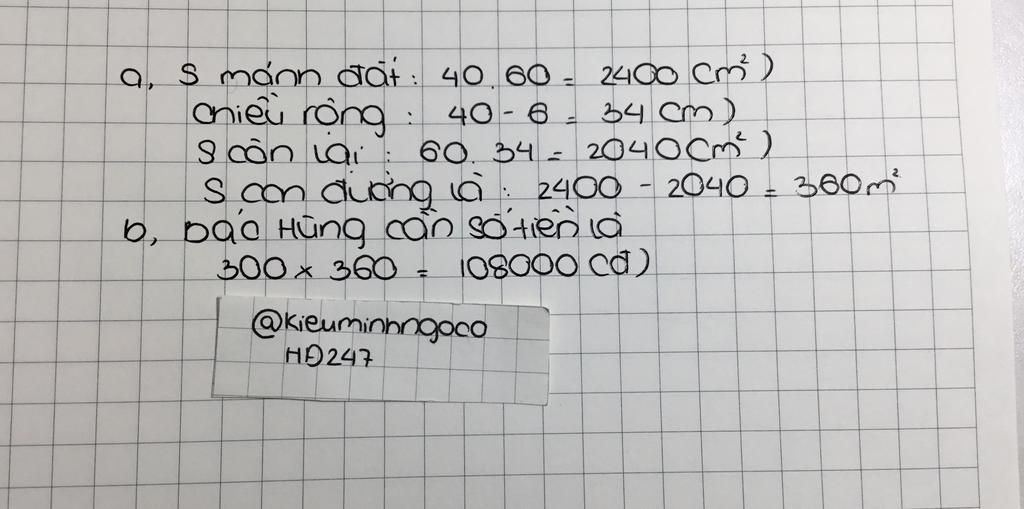 a, S mảnh đất: 40.60 = 2400 (m²)
chiều rộng: 40 - 6 = 34 (m)
S còn lại: 60.34 = 2040 (m²)
S con đường là: 2400 - 2040 = 360m²
b, bác Hùng cần số tiền là
300 x 360 = 108000 (đ)
@kieuminhngoco
HĐ247